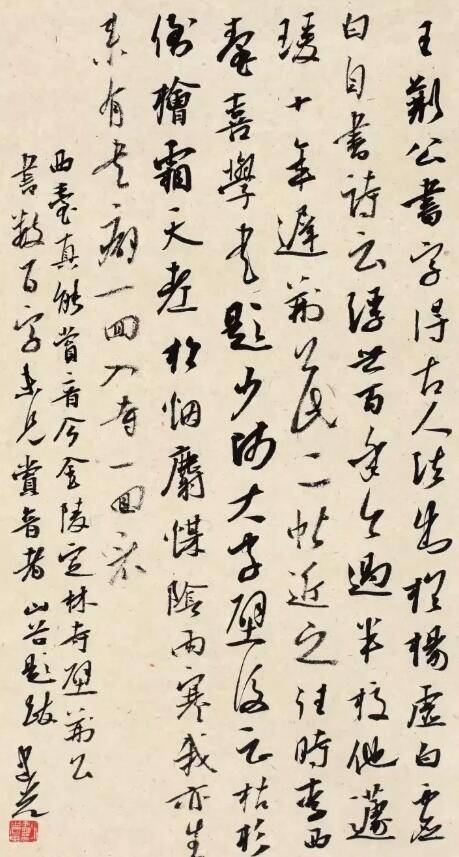 王荆公書字得古人法出於楊虛白虛
白自書詩云浮世百年今過半校他蘧
瑗十年遲荆公此二帖近之往時李西
臺喜學書題少師大字壁後云枯杉
倒檜霜天老松烟麝煤陰雨寒我亦生
來有書癖一回入寺一回看
西臺真能賞音今金陵定林寺壁荆公
書數百字未見賞音者 山谷題跋